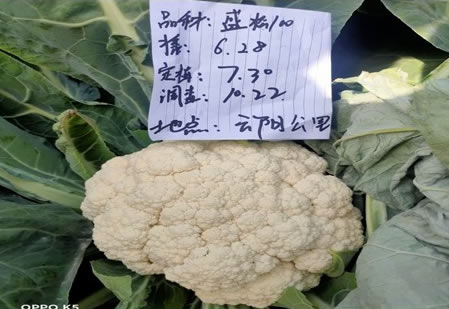 品种: 盛松100
播: 6.28
定植: 7.30
调查: 10.22
地点: 云阳公里
OPPO K5